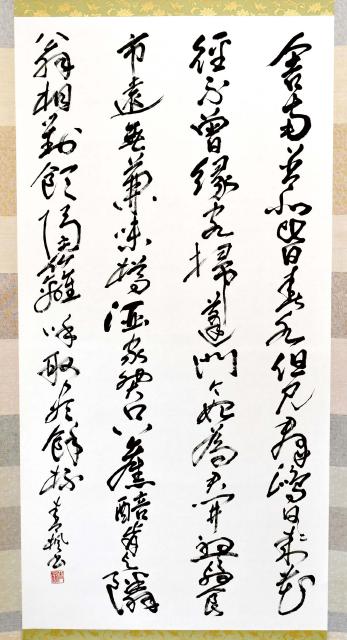 舎南舎北皆春水但見群鴎日々来花
徑不曽縁客掃蓬門今始為君開盤飧
市遠無兼味樽酒家貧只舊醅肯与隣
翁相對飲隔籬呼取盡餘杯 青楓書